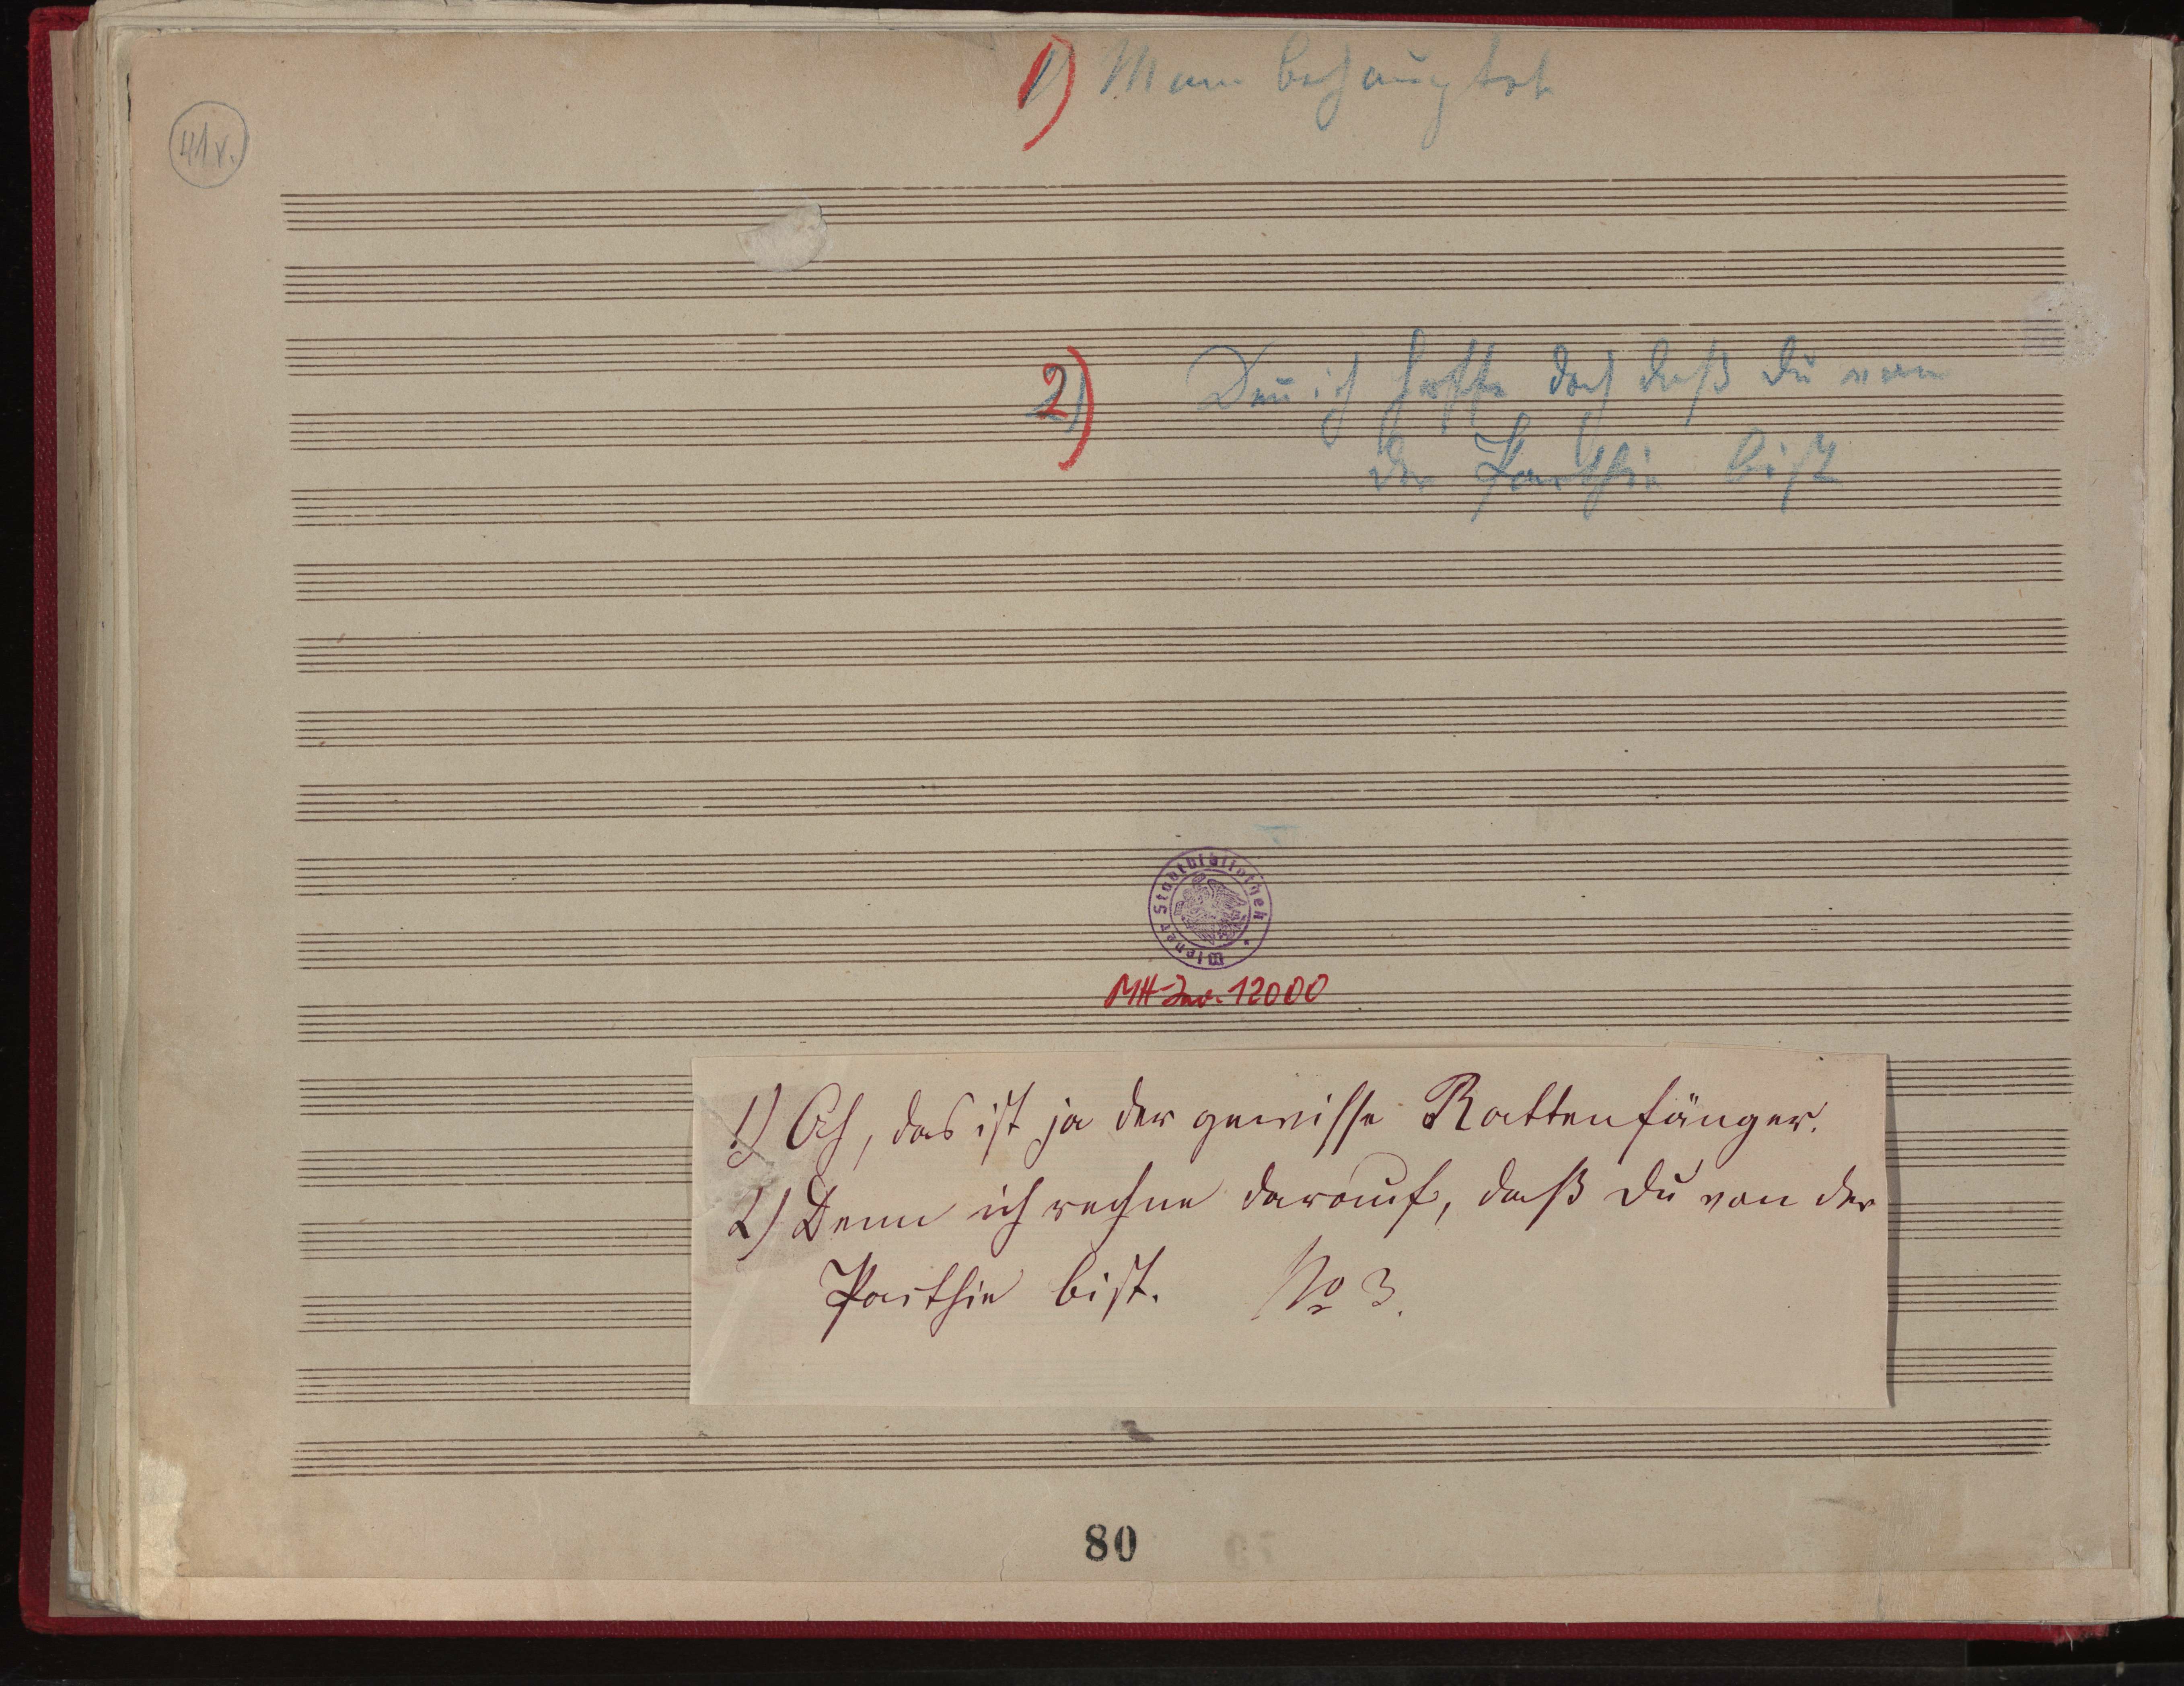 1) Man behauptet
41v.
2) Deñ ich hoffe doch daß du von
der Parthie bist
Wiener Stadtbibliothek
MH-Inv. 12000
1) Ah, das ist ja der gewisse Rattenfänger.
2) Denn ich rechne darauf, daß du von der
Parthie bist. No 3.
80